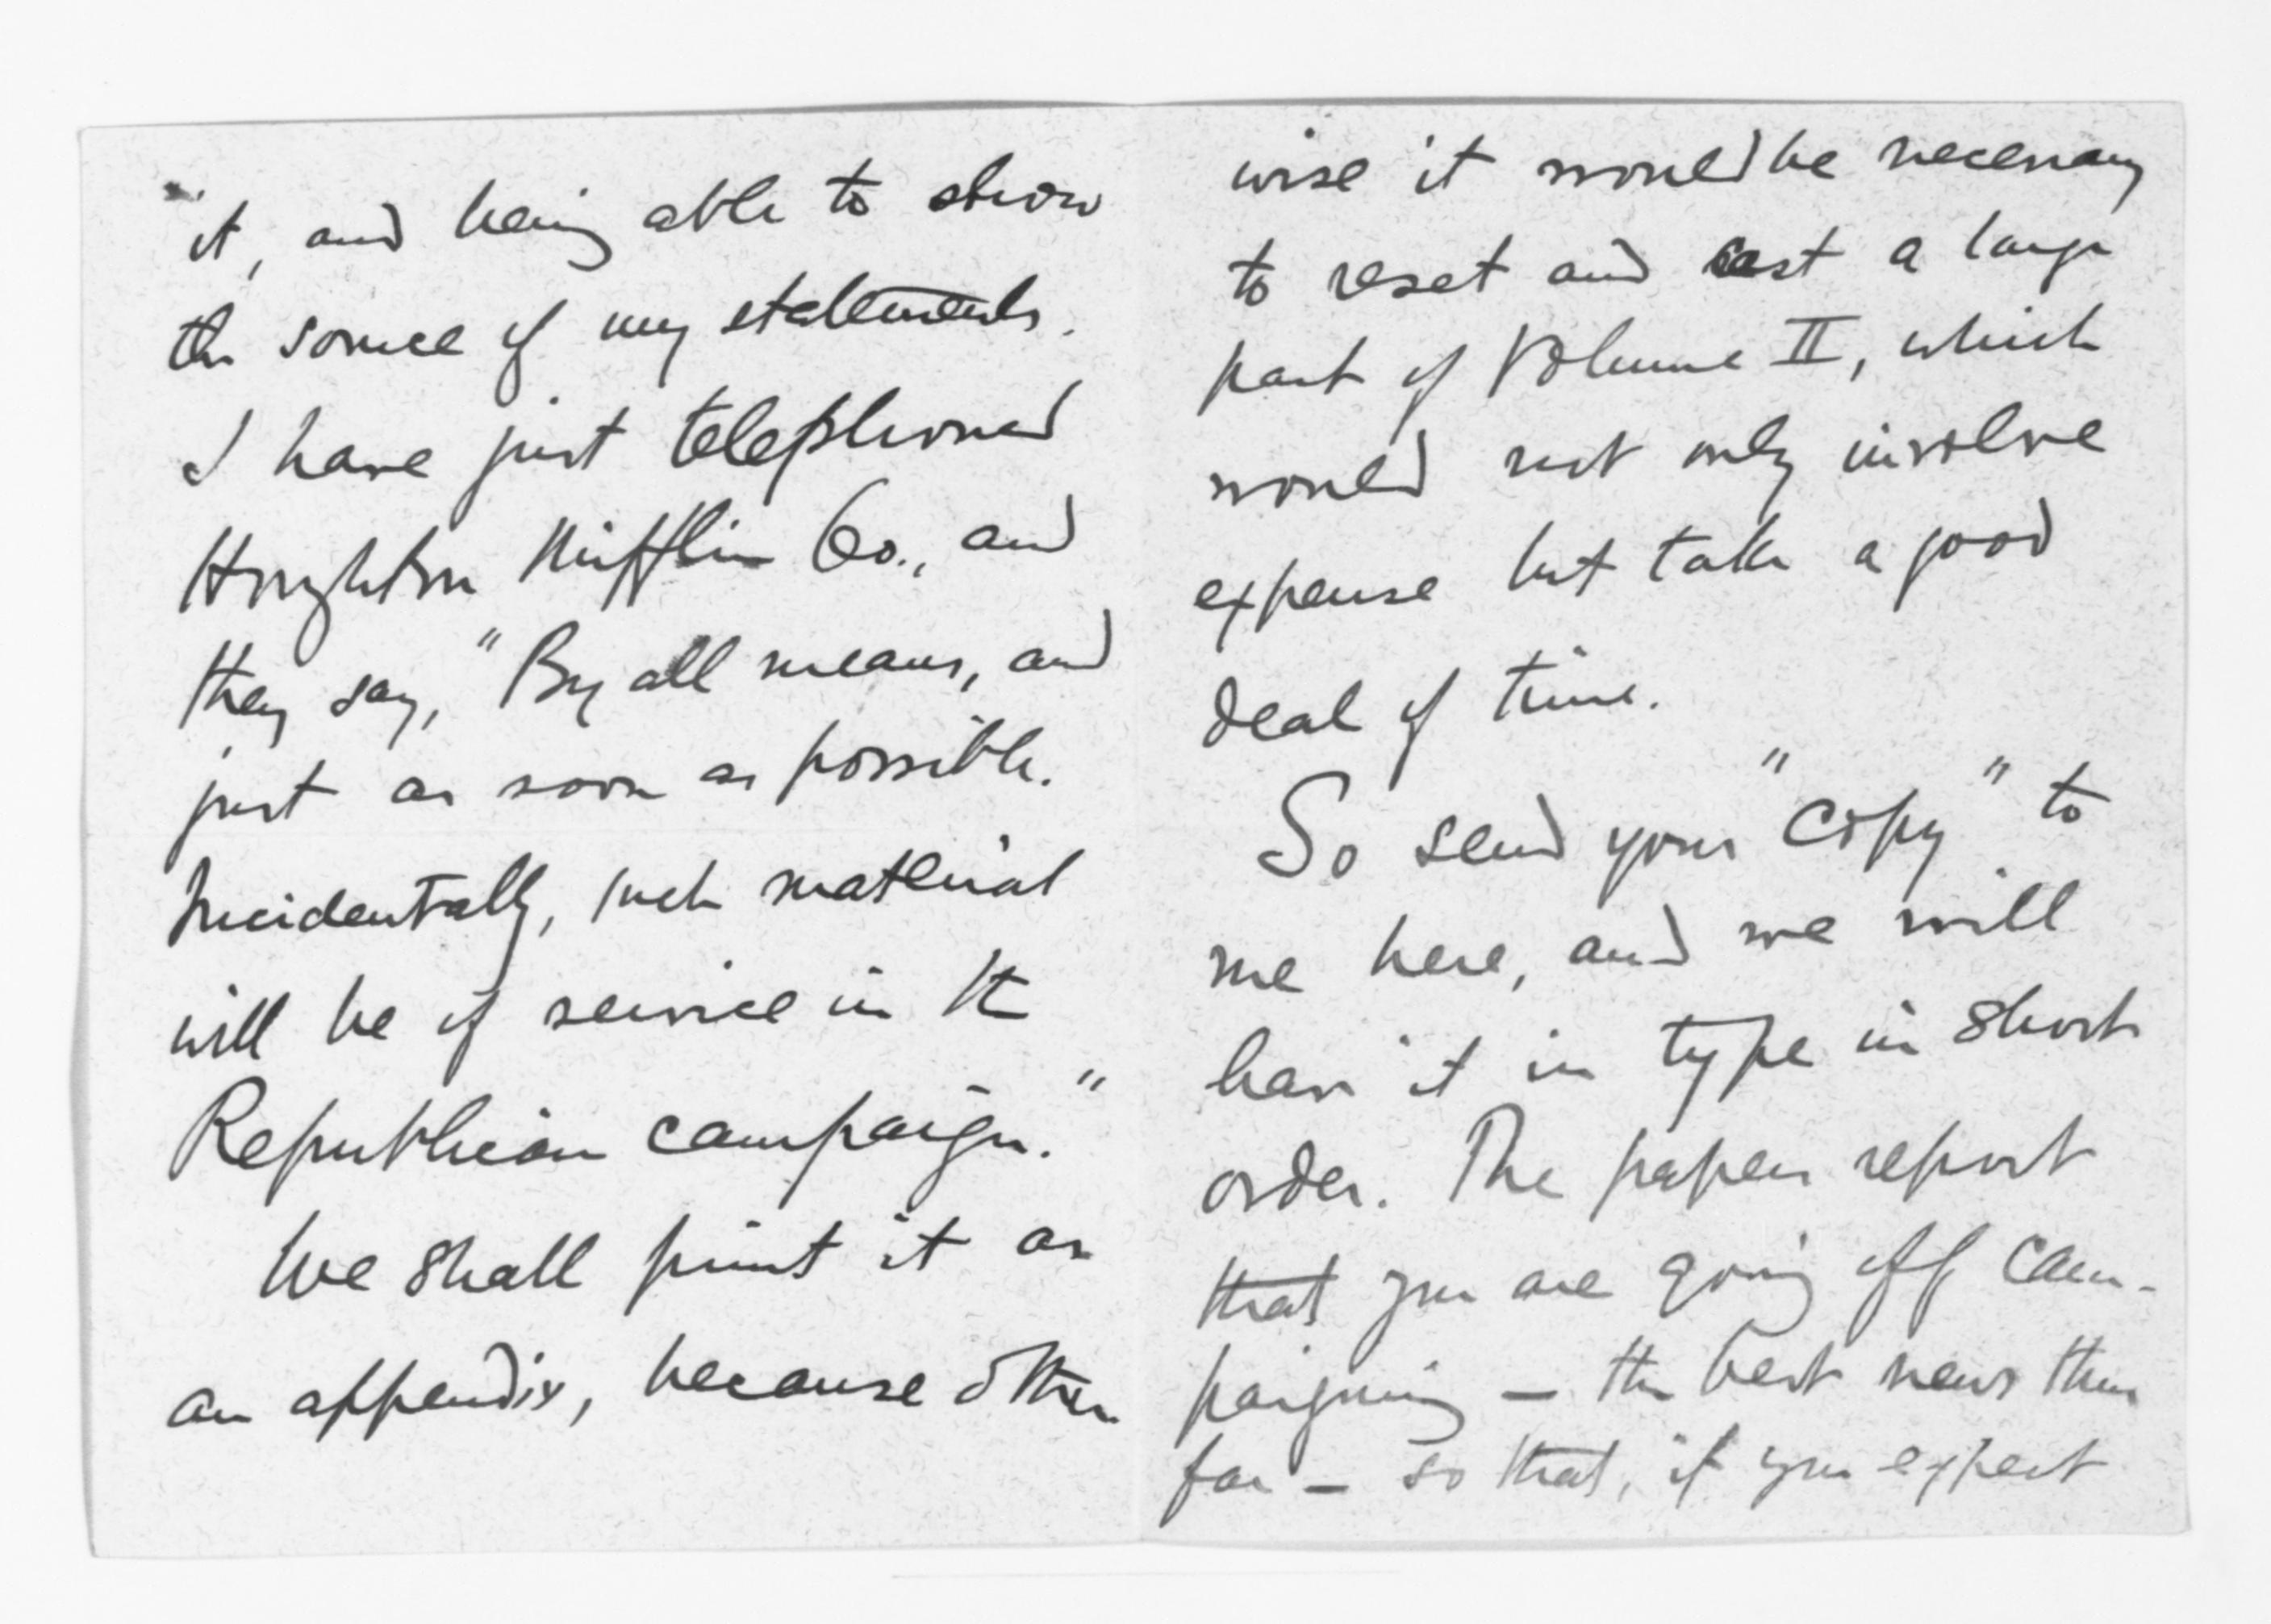 it, and being able to show
the source of my statements.
I have just telephoned
Houghton Mifflin Co., and
they say, "By all means, and
just as soon as possible.
Incidentally, such material
will be of service in the
Republican campaign."
We shall print it as
an appendix, because other-
wise it would be necessary
to reset and cast a large
part of Volume II, which
would not only involve
expense but take a good
deal of time.
So send your "copy" to
me here, and we will
have it in type in short
order. The papers report
that you are going off cam-
paigning — the best news thus
far — so that, if you expect